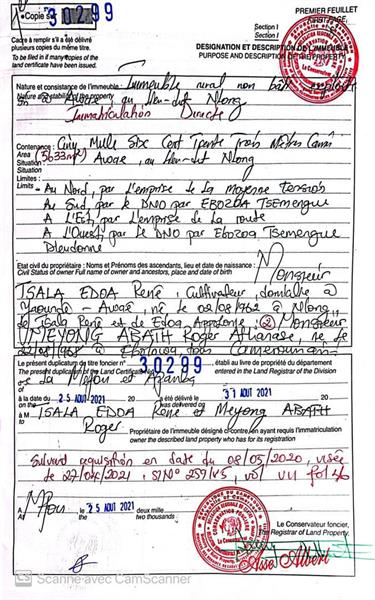 30299
Copie
PREMIER FEUILLET
FIRST PAGE
Section I
Section I
Cadre à remplir s'il a été délivré
plusieurs copies du même titre.
To be filed if many copies of the
land certificate have been issued.
DESIGNATION ET DESCRIPTION DE L'IMMEUBLE
PURPOSE AND DESCRIPTION OF THE PROPERTY
Nature et consistance de l'immeuble : Immeuble rural non bâti exploité
sis à Awae, au lieu-dit Ntong
Immatriculation Directe
Contenance : Cinq Mille Six Cent Trente Trois Mètres Carrés
Area (5633m²)
Situation : Awae, au lieu-dit Ntong
Situation
Limites :
Limits
Au Nord, par l'emprise de la moyenne tension
Au Sud, par le DNO par EBOZOA TSEMENGUE
A l'Est, par l'emprise de la route
A l'Ouest, par le DNO par Ebozoa Tsemengue
Dieudonné
Etat civil du propriétaire : Noms et Prénoms des ascendants, lieu et date de naissance :
Civil Status of owner Full name of owner and ancestors, place and date of birth
Monsieur
TSALA EDOA René, Cultivateur, domicilié à
Yaoundé - Awaé, né le 02/08/1962 à Ntong,
de Tsala René et de Edoa Appolonie, (2) Monsieur
MEYONG ABATH Roger Athanase, né le
à Cameroun
Le présent duplicata du titre foncier n° 30299 établi au livre de propriété du département
The present duplicata of the Land Certificate N° entered in the Land Registrar of the Division
de La Mefou et Afamba
à la date du 25 AOUT 2021 a été délivré le 31 AOUT 2021
was delivered on
à M TSALA EDOA René et Meyong ABATH
Roger
Propriétaire de l'immeuble désigné ci-contre en ayant requis l'immatriculation
owner the described land property who has for its registration
Suivant acquisition en date du 08/05/2020, visée
le 27/04/2021, s/N° 259/45, vol VII fol 46
A Mfou le 25 AOUT 2021 deux mille
At two thousands
Le Conservateur foncier,
The Registrar of Land Property,
CS Scanné avec CamScanner